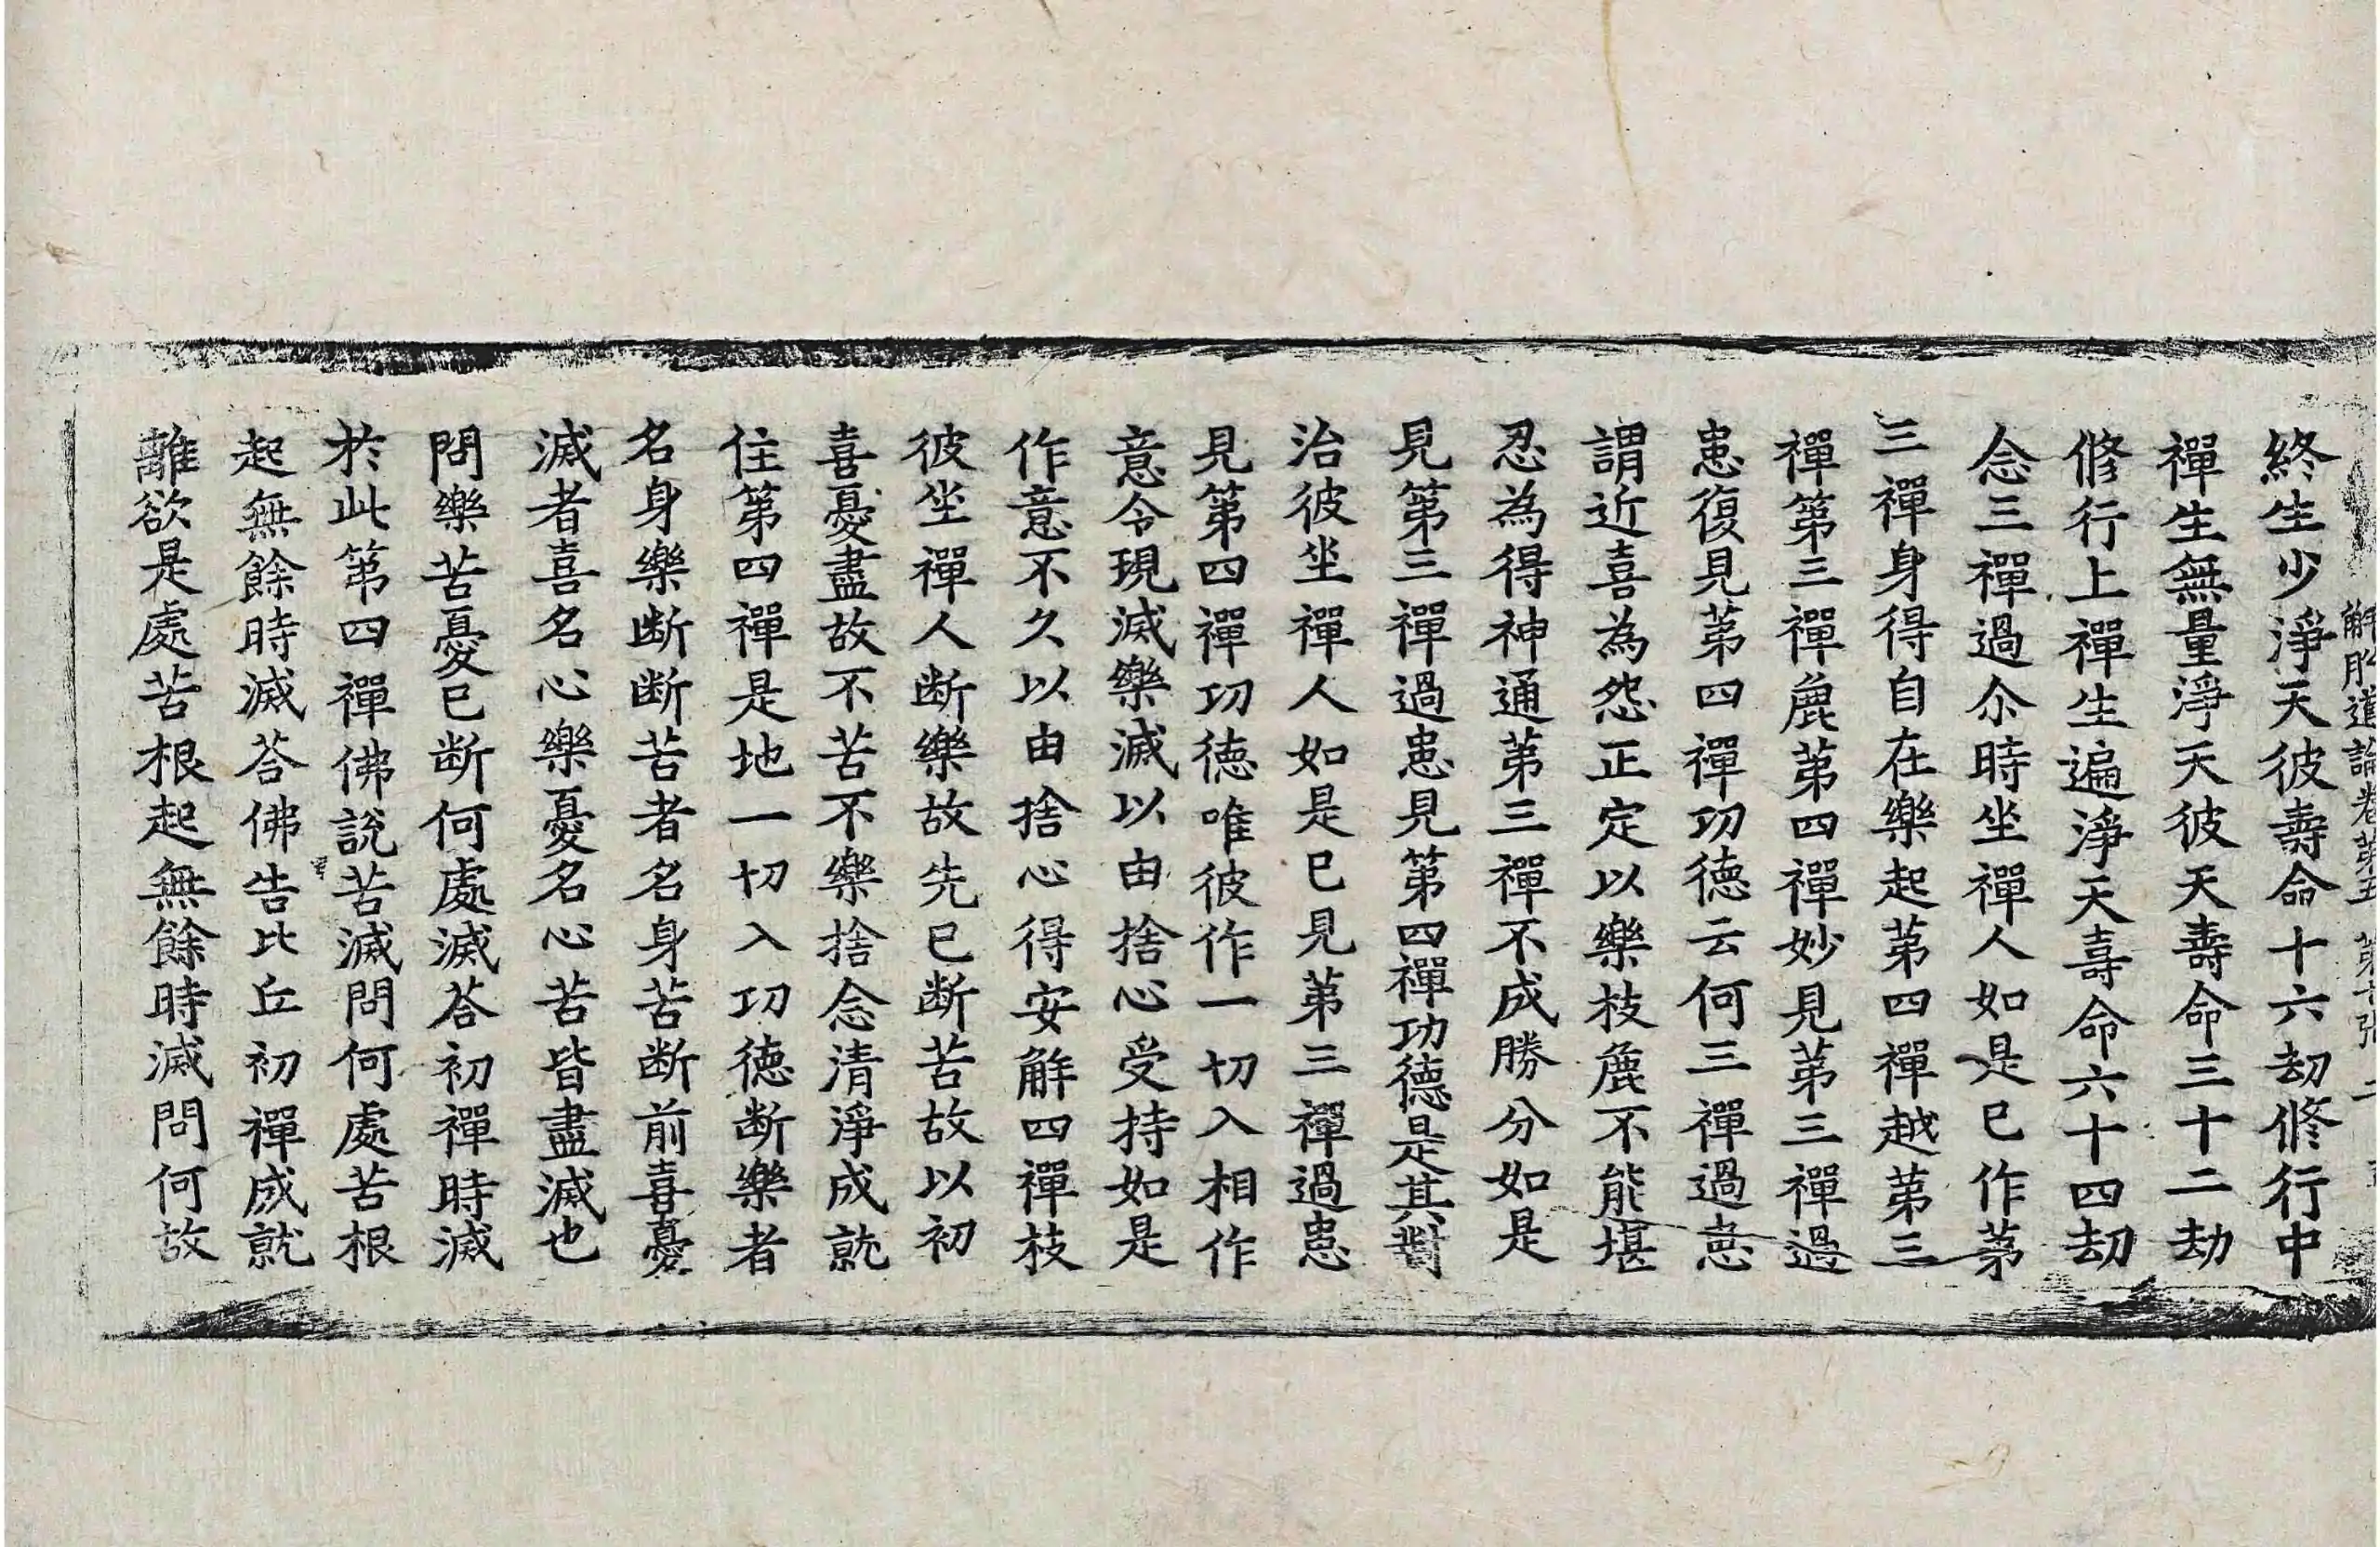 解脫道論卷第五 第十張
終生少淨天彼壽命十六劫修行中
禪生無量淨天彼天壽命三十二劫
修行上禪生遍淨天壽命六十四劫
念三禪過尒時坐禪人如是已作第
三禪身得自在樂起第四禪越第三
禪第三禪麁第四禪妙見第三禪過
患復見第四禪功德云何三禪過患
謂近喜為怨正定以樂枝麁不能堪
忍為得神通第三禪不成勝分如是
見第三禪過患見第四禪功德是其對
治彼坐禪人如是已見第三禪過患
見第四禪功德唯彼作一切入相作
意令現滅樂滅以由捨心受持如是
作意不久以由捨心得安解四禪枝
彼坐禪人断樂故先已断苦故以初
喜憂盡故不苦不樂捨念清淨成就
住第四禪是地一切入功德断樂者
名身樂断断苦者名身苦断前喜憂
滅者喜名心樂憂名心苦皆盡滅也
問樂苦憂已断何處滅荅初禪時滅
於此第四禪佛說苦滅問何處苦根
起無餘時滅荅佛告比丘初禪成就
離欲是處苦根起無餘時滅問何故